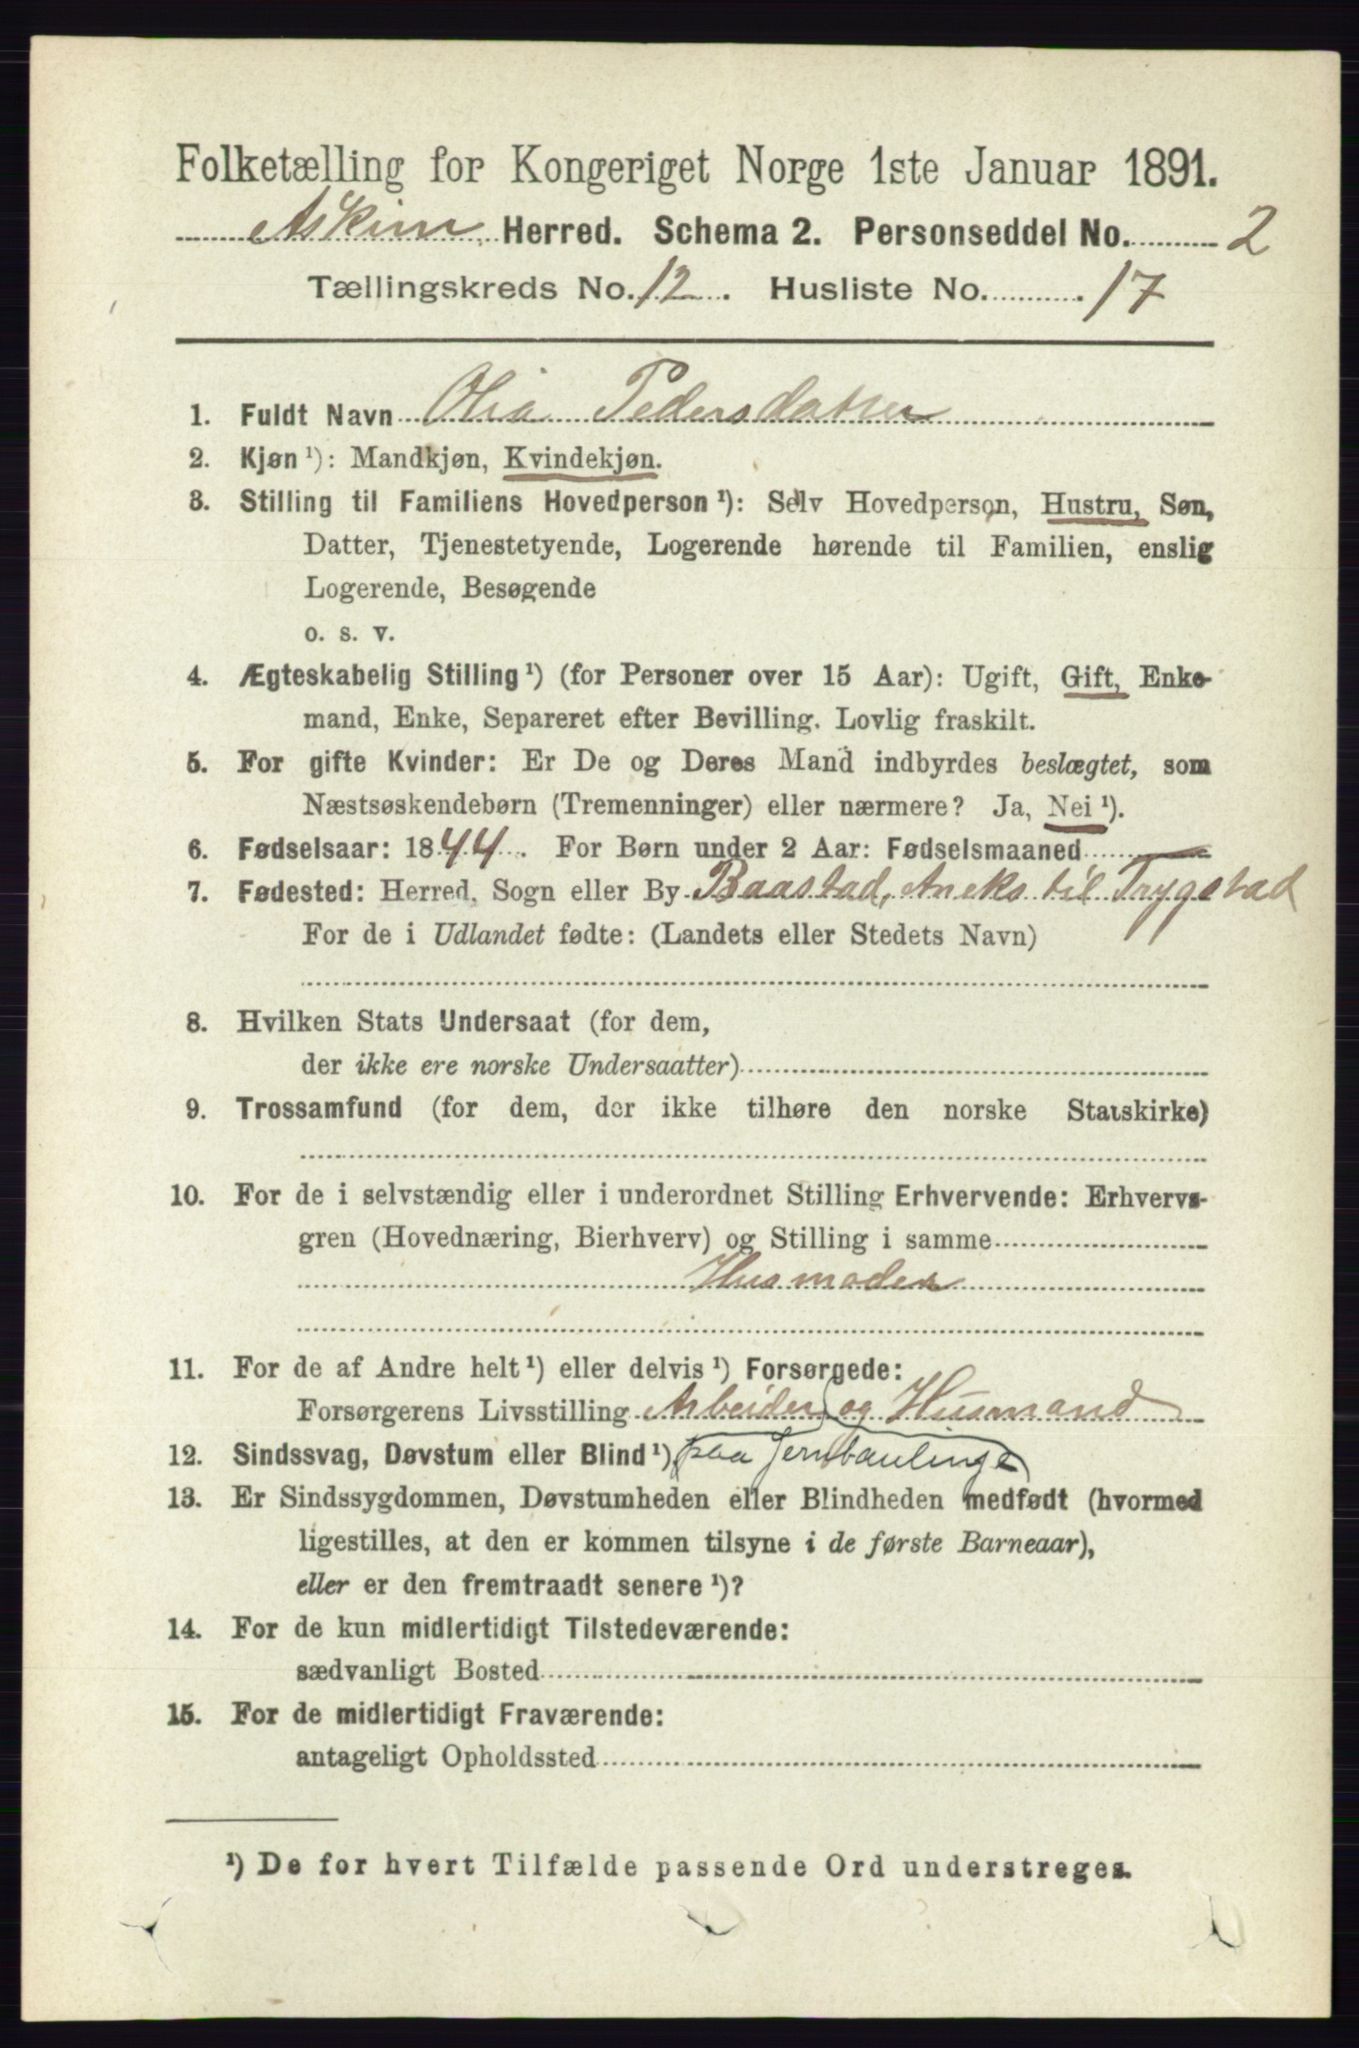 Folketælling for Kongeriget Norge 1ste Januar 1891.
Askim Herred. Schema 2. Personseddel No. 2
Tællingskreds No. 12. Husliste No. 17
1. Fuldt Navn Olia Pedersdatter
2. Kjøn ¹): Mandkjøn, Kvindekjøn.
3. Stilling til Familiens Hovedperson ¹): Selv Hovedperson, Hustru, Søn,
Datter, Tjenestetyende, Logerende hørende til Familien, enslig
Logerende, Besøgende
o. s. v.
4. Ægteskabelig Stilling ¹) (for Personer over 15 Aar): Ugift, Gift, Enke-
mand, Enke, Separeret efter Bevilling. Lovlig fraskilt.
5. For gifte Kvinder: Er De og Deres Mand indbyrdes beslægtet, som
Næstsøskendebørn (Tremenninger) eller nærmere? Ja, Nei ¹).
6. Fødselsaar: 1844. For Børn under 2 Aar: Fødselsmaaned
7. Fødested: Herred, Sogn eller By Baastad, Aneks til Trygstad
For de i Udlandet fødte: (Landets eller Stedets Navn)
8. Hvilken Stats Undersaat (for dem,
der ikke ere norske Undersaatter)
9. Trossamfund (for dem, der ikke tilhøre den norske Statskirke)
10. For de i selvstændig eller i underordnet Stilling Erhvervende: Erhvervs-
gren (Hovednæring, Bierhverv) og Stilling i samme
Husmoder
11. For de af Andre helt ¹) eller delvis ¹) Forsørgede:
Forsørgerens Livsstilling Arbeider og Husmand
12. Sindssvag, Døvstum eller Blind ¹). paa Jernbanlinge
13. Er Sindssygdommen, Døvstumheden eller Blindheden medfødt (hvormed
ligestilles, at den er kommen tilsyne i de første Barneaar),
eller er den fremtraadt senere ¹)?
14. For de kun midlertidigt Tilstedeværende:
sædvanligt Bosted
15. For de midlertidigt Fraværende:
antageligt Opholdssted
¹) De for hvert Tilfælde passende Ord understreges.